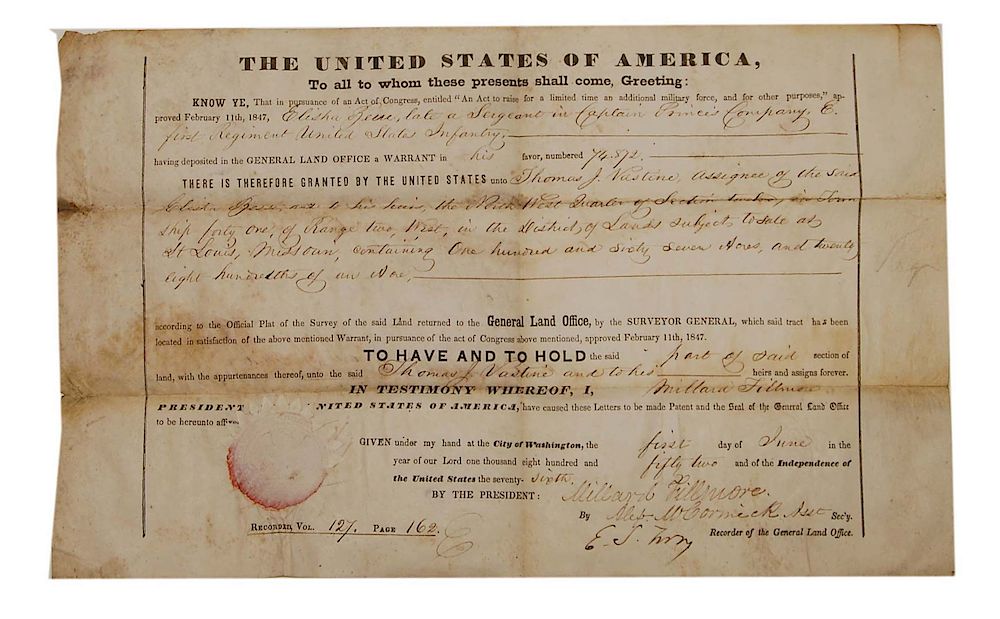 THE UNITED STATES OF AMERICA,
To all to whom these presents shall come, Greeting:
KNOW YE, That in pursuance of an Act of Congress, entitled "An Act to raise for a limited time an additional military force, and for other purposes," ap-
proved February 11th, 1847, Elisha late a Sergeant in Captain Company, E.
first Regiment United States Infantry,
having deposited in the GENERAL LAND OFFICE a WARRANT in his favor, numbered 74.892.
THERE IS THEREFORE GRANTED BY THE UNITED STATES unto Thomas J. Vastine, assignee of the said
Elisha and to his heirs, the North West Quarter of Section twelve, in Town
ship forty one, of Range two, West, in the District of Lands subject to sale at
St Louis, Missouri, containing One hundred and sixty seven Acres, and twenty
eight hundredths of an Acre,
according to the Official Plat of the Survey of the said Land returned to the General Land Office, by the SURVEYOR GENERAL, which said tract has been
located in satisfaction of the above mentioned Warrant, in pursuance of the act of Congress above mentioned, approved February 11th, 1847.
TO HAVE AND TO HOLD the said part of said section of
land, with the appurtenances thereof, unto the said Thomas J. Vastine and to his heirs and assigns forever.
IN TESTIMONY WHEREOF, I, Millard Fillmore
PRESIDENT NITED STATES OF AMERICA, have caused these Letters to be made Patent and the Seal of the General Land Office
to be hereunto
GIVEN under my hand at the City of Washington, the first day of June in the
year of our Lord one thousand eight hundred and fifty two and of the Independence of
the United States the seventy- sixth.
BY THE PRESIDENT: Millard Fillmore.
By Alex. McCormick Asst Sec'y.
RECORDED, VOL. 127. PAGE 162. E. S. Terry Recorder of the General Land Office.